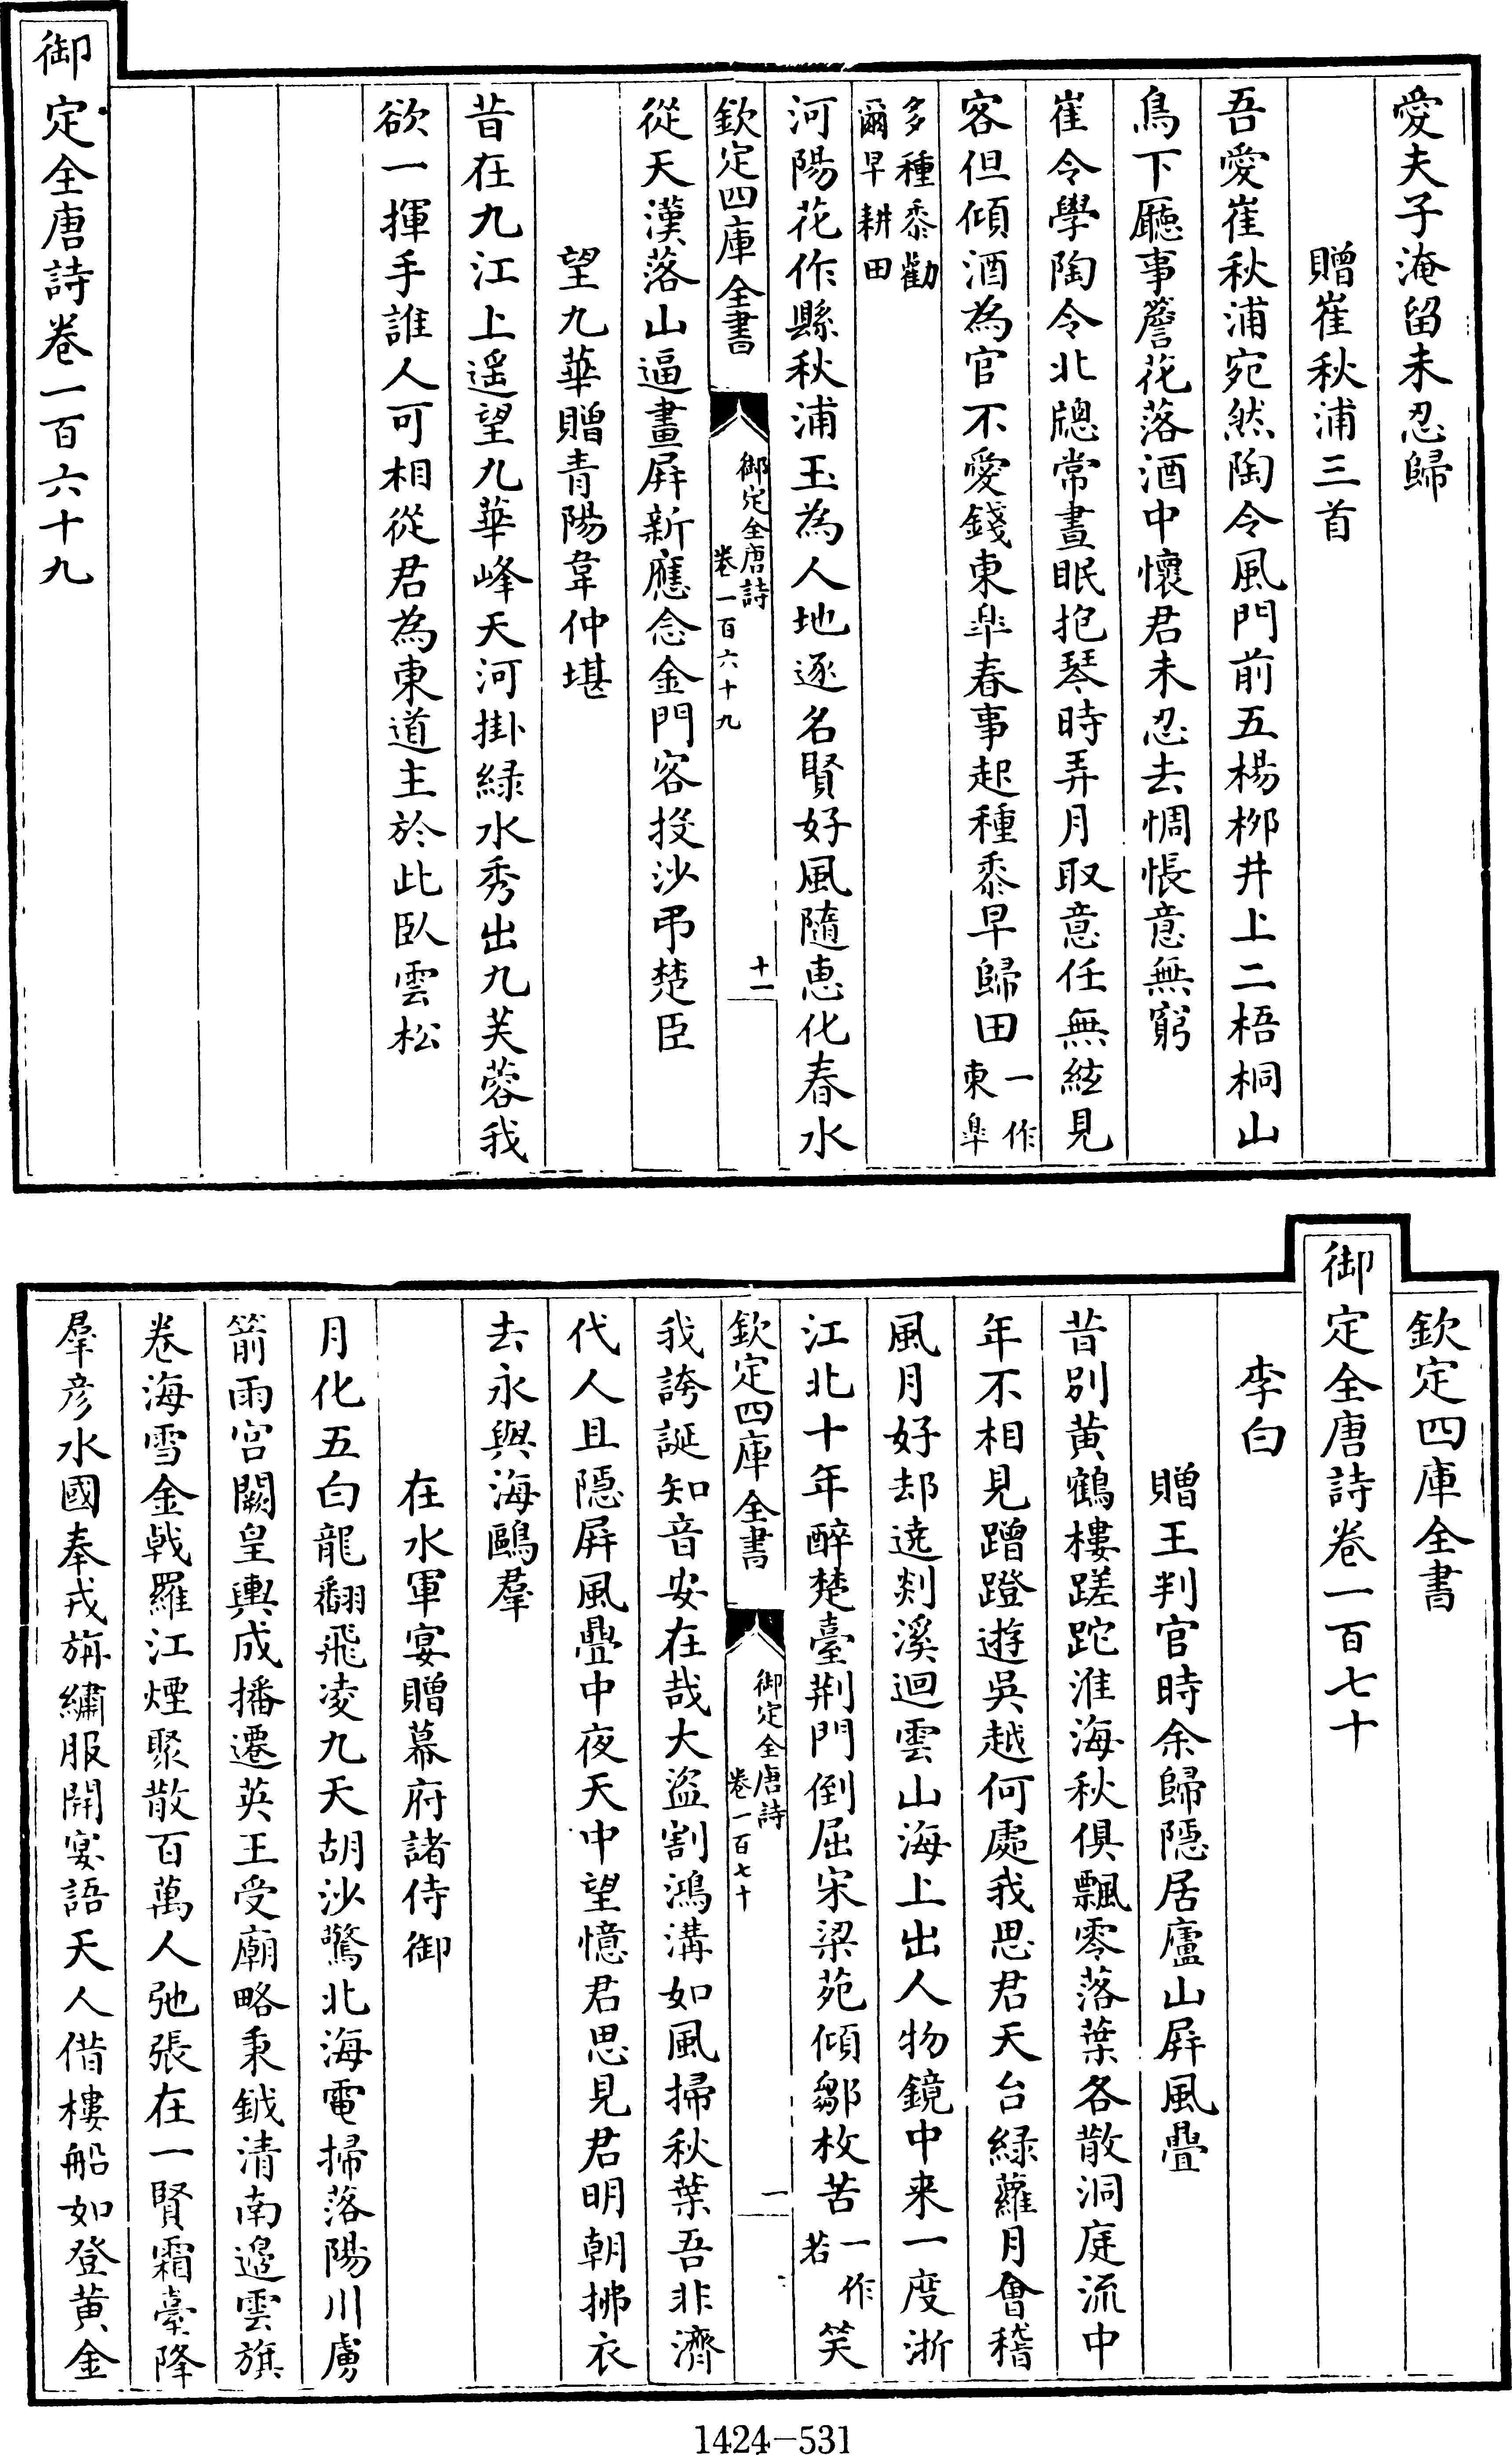 愛夫子淹留未忍歸
贈崔秋浦三首
吾愛崔秋浦宛然陶令風門前五楊栁井上二梧桐山
鳥下廳事簷花落酒中懷君未忍去惆悵意無窮
崔令學陶令北牕常晝眠抱琴時弄月取意任無絃見
客但傾酒為官不愛錢東臯春事起種黍早歸田一作東臯
多種黍勸爾早耕田
河陽花作縣秋浦玉為人地逐名賢好風隨惠化春水
欽定四庫全書
御定全唐詩
卷一百六十九
十一
從天漢落山逼畫屏新應念金門客投沙弔楚臣
望九華贈青陽韋仲堪
昔在九江上遥望九華峰天河掛緑水秀出九芙蓉我
欲一揮手誰人可相從君為東道主於此臥雲松
御定全唐詩卷一百六十九
欽定四庫全書
御定全唐詩卷一百七十
李白
贈王判官時余歸隱居廬山屏風疊
昔別黄鶴樓蹉跎淮海秋俱飄零落葉各散洞庭流中
年不相見蹭蹬遊吳越何處我思君天台緑蘿月會稽
風月好却遶剡溪迴雲山海上出人物鏡中来一度浙
江北十年醉楚臺荆門倒屈宋梁苑傾鄒枚苦一作若笑
欽定四庫全書
御定全唐詩
卷一百七十
一
我誇誕知音安在哉大盜割鴻溝如風掃秋葉吾非濟
代人且隱屏風疊中夜天中望憶君思見君明朝拂衣
去永與海鷗羣
在水軍宴贈幕府諸侍御
月化五白龍翻飛凌九天胡沙驚北海電掃落陽川虜
箭雨宮闕皇輿成播遷英王受廟略秉鉞清南邉雲旗
卷海雪金戟羅江煙聚散百萬人弛張在一賢霜臺降
羣彦水國奉戎旃繡服開宴語天人借樓船如登黄金
1424-531